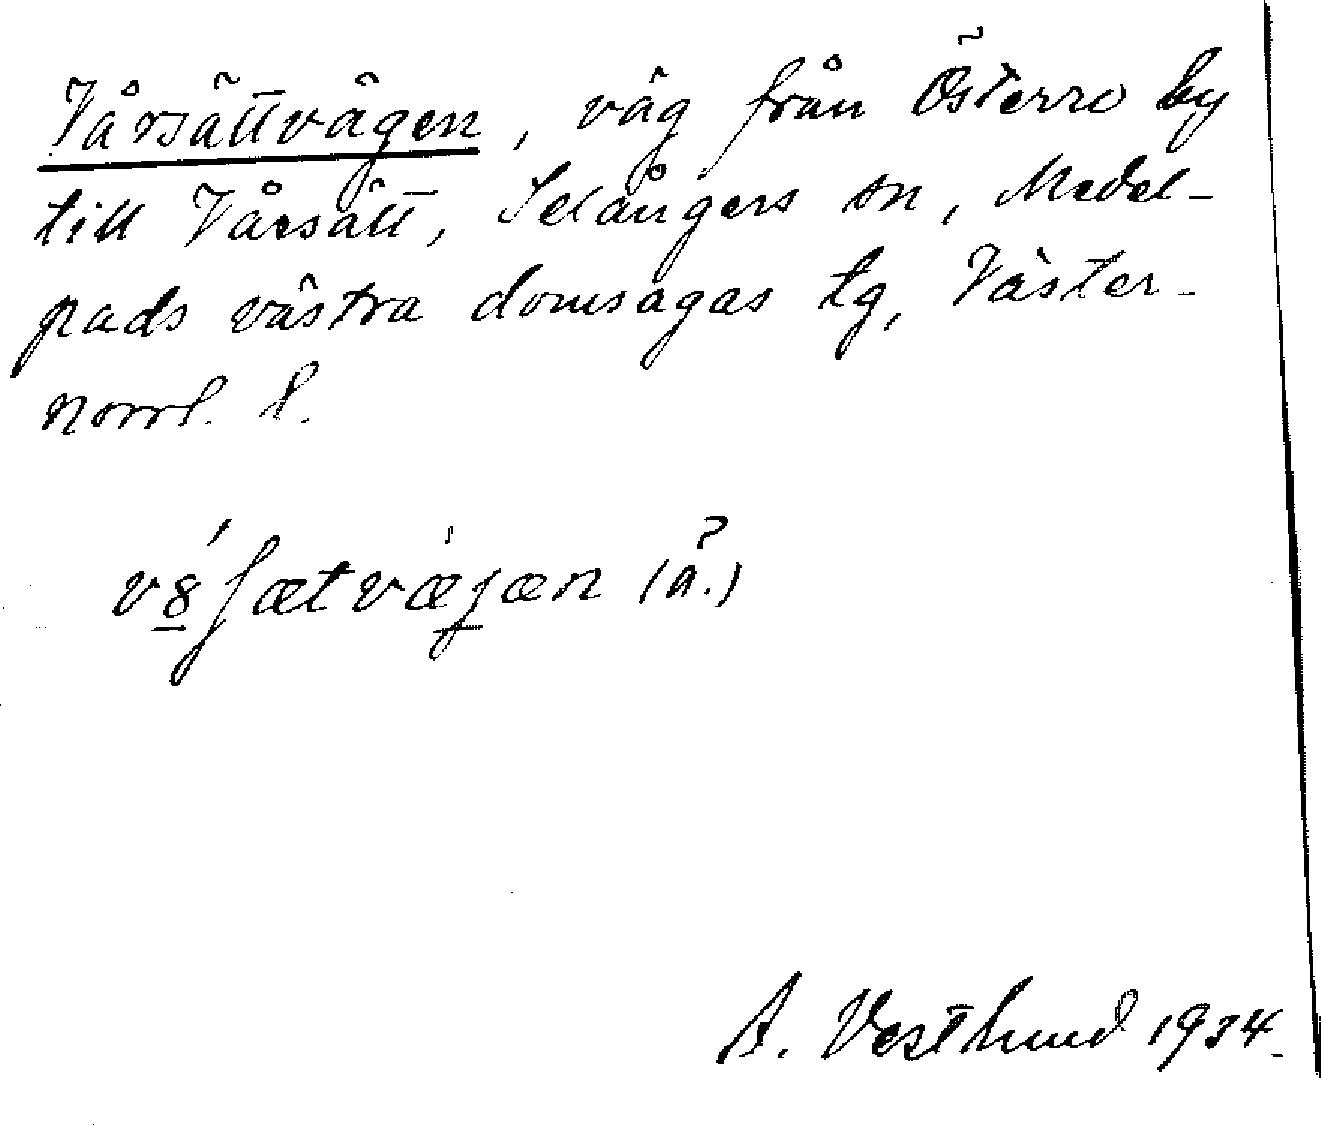 Vårsättvägen, väg från Österro by
till Vårsätt, Selångers sn, Medel-
pads västra domsagas tg, Väster-
norrl. l.
v8́ʃætvæ̀jæn (å.)
A. Vestlund 1934.